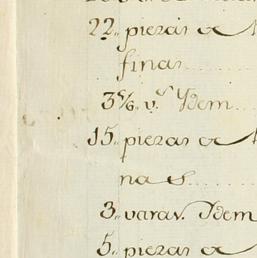 22,, piezas de
finas
3 5/6,, v.s Ydem
15,, piezas de
na es
3,, varas. Ydem
5,, piezas de